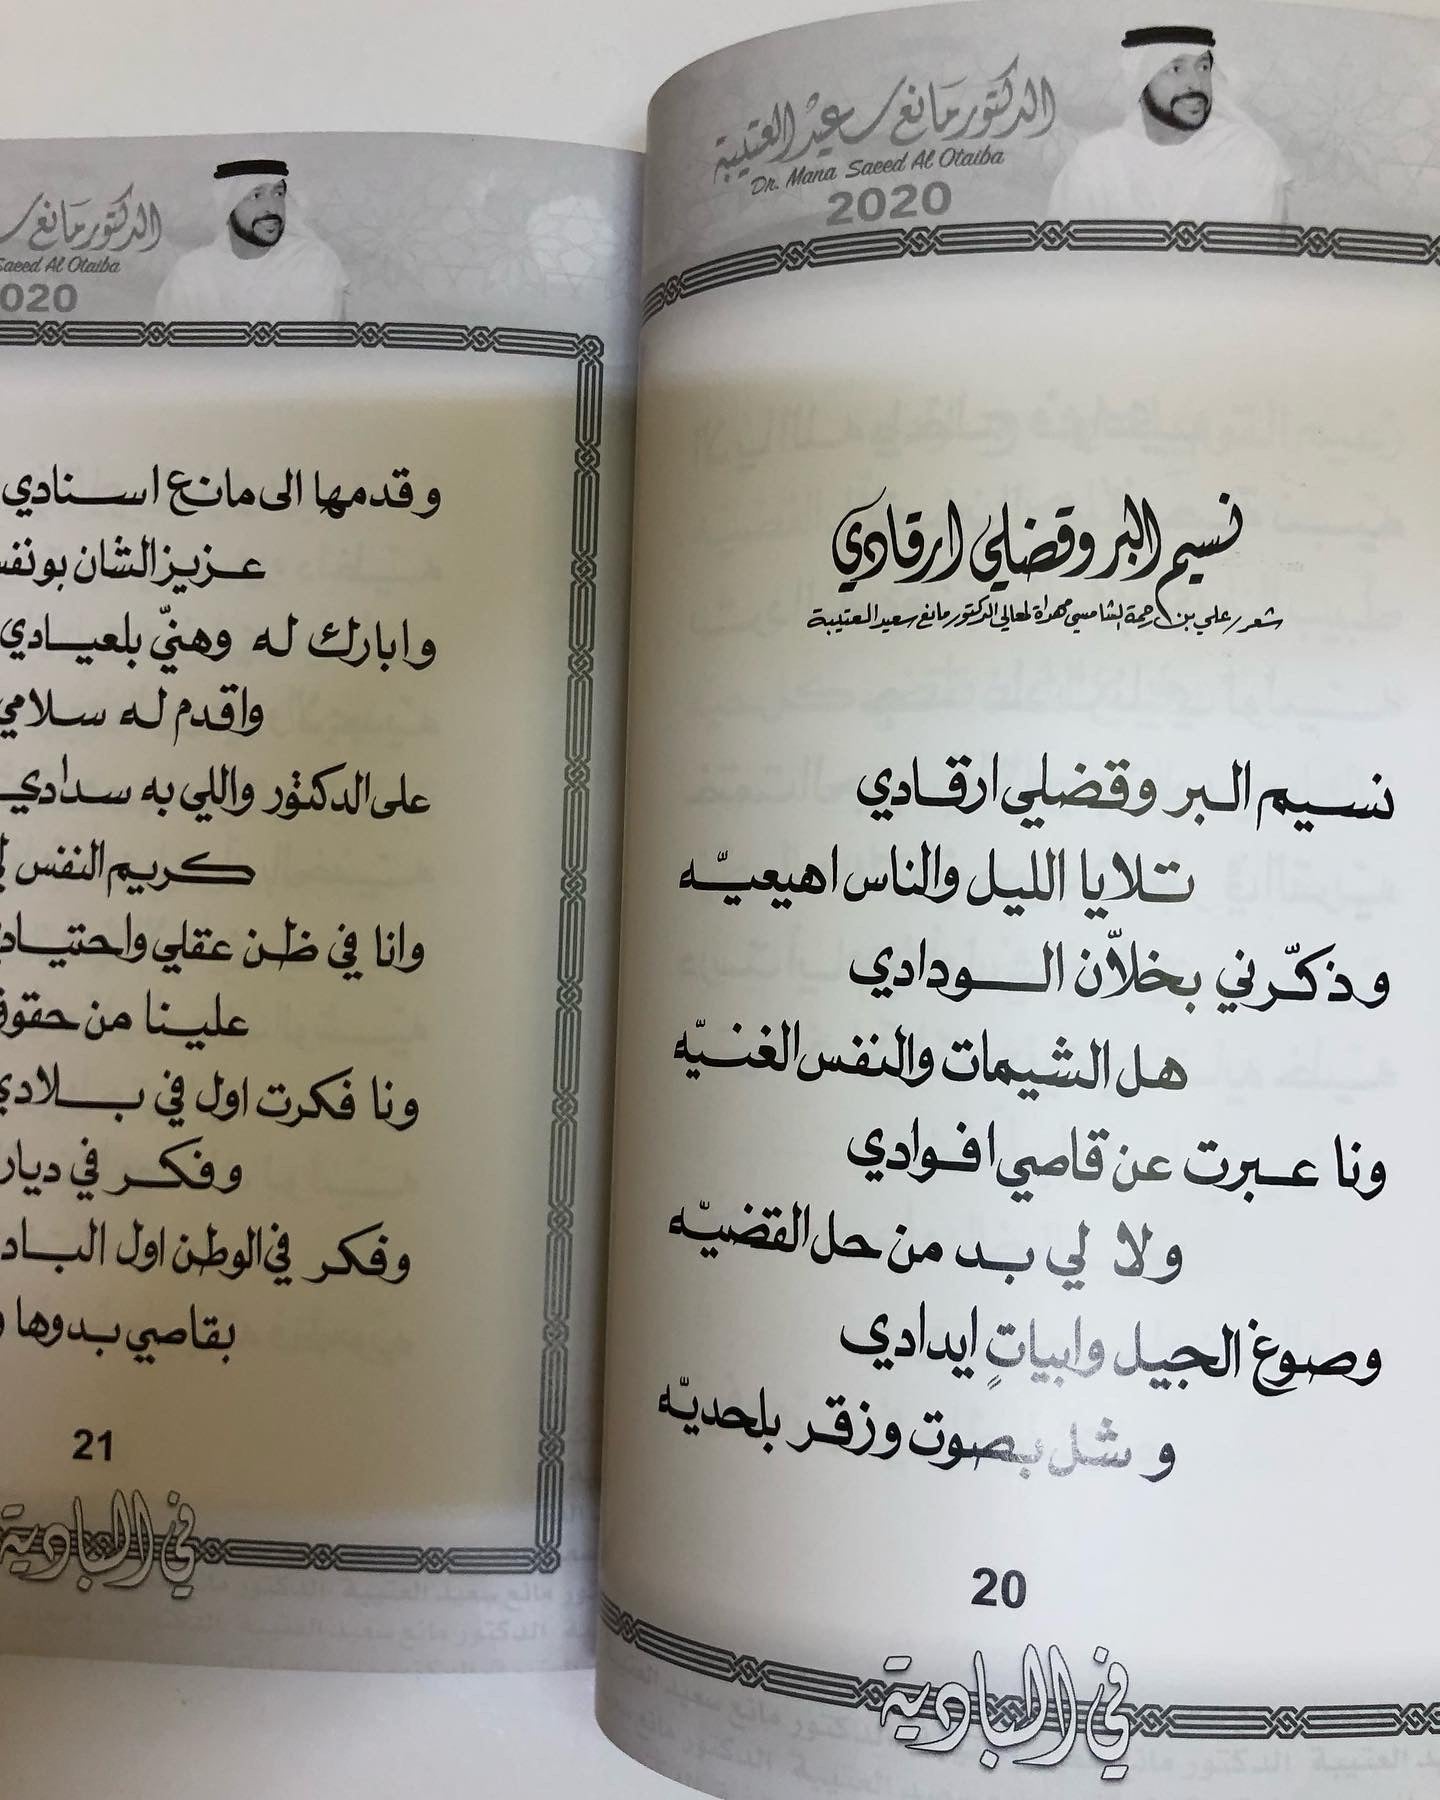 الدكتور مانع سعيد العتيبة
Dr. Mana Saeed Al Otaiba
2020
نسيم البر وقضلي ارقادي
شعر/ علي بن رحمة الشامسي مهداة لمعالي الدكتور مانع سعيد العتيبة
نسيم البر وقضلي ارقادي
تلايا الليل والناس اهيعيّه
وذكّرني بخلاّن الودادي
هل الشيمات والنفس الغنيّه
ونا عبرت عن قاصي افوادي
ولا لي بد من حل القضيّه
وصوغ الجيل وابياتٍ ايدادي
وشل بصوت وزقر بلحديّه
20
في البادية
الدكتور مانع
Saeed Al Otaiba
020
وقدمها الى مانع اسنادي
عزيز الشان بونفس
وابارك له وهنّي بلعيادي
واقدم له سلامي
على الدكتور واللي به سدادي
كريم النفس
وانا في ظن عقلي واحتياد
علينا من حقوق
ونا فكرت اول في بلادي
وفكر في ديار
وفكر في الوطن اول الباد
بقاصي بدوها و
21
في البادية